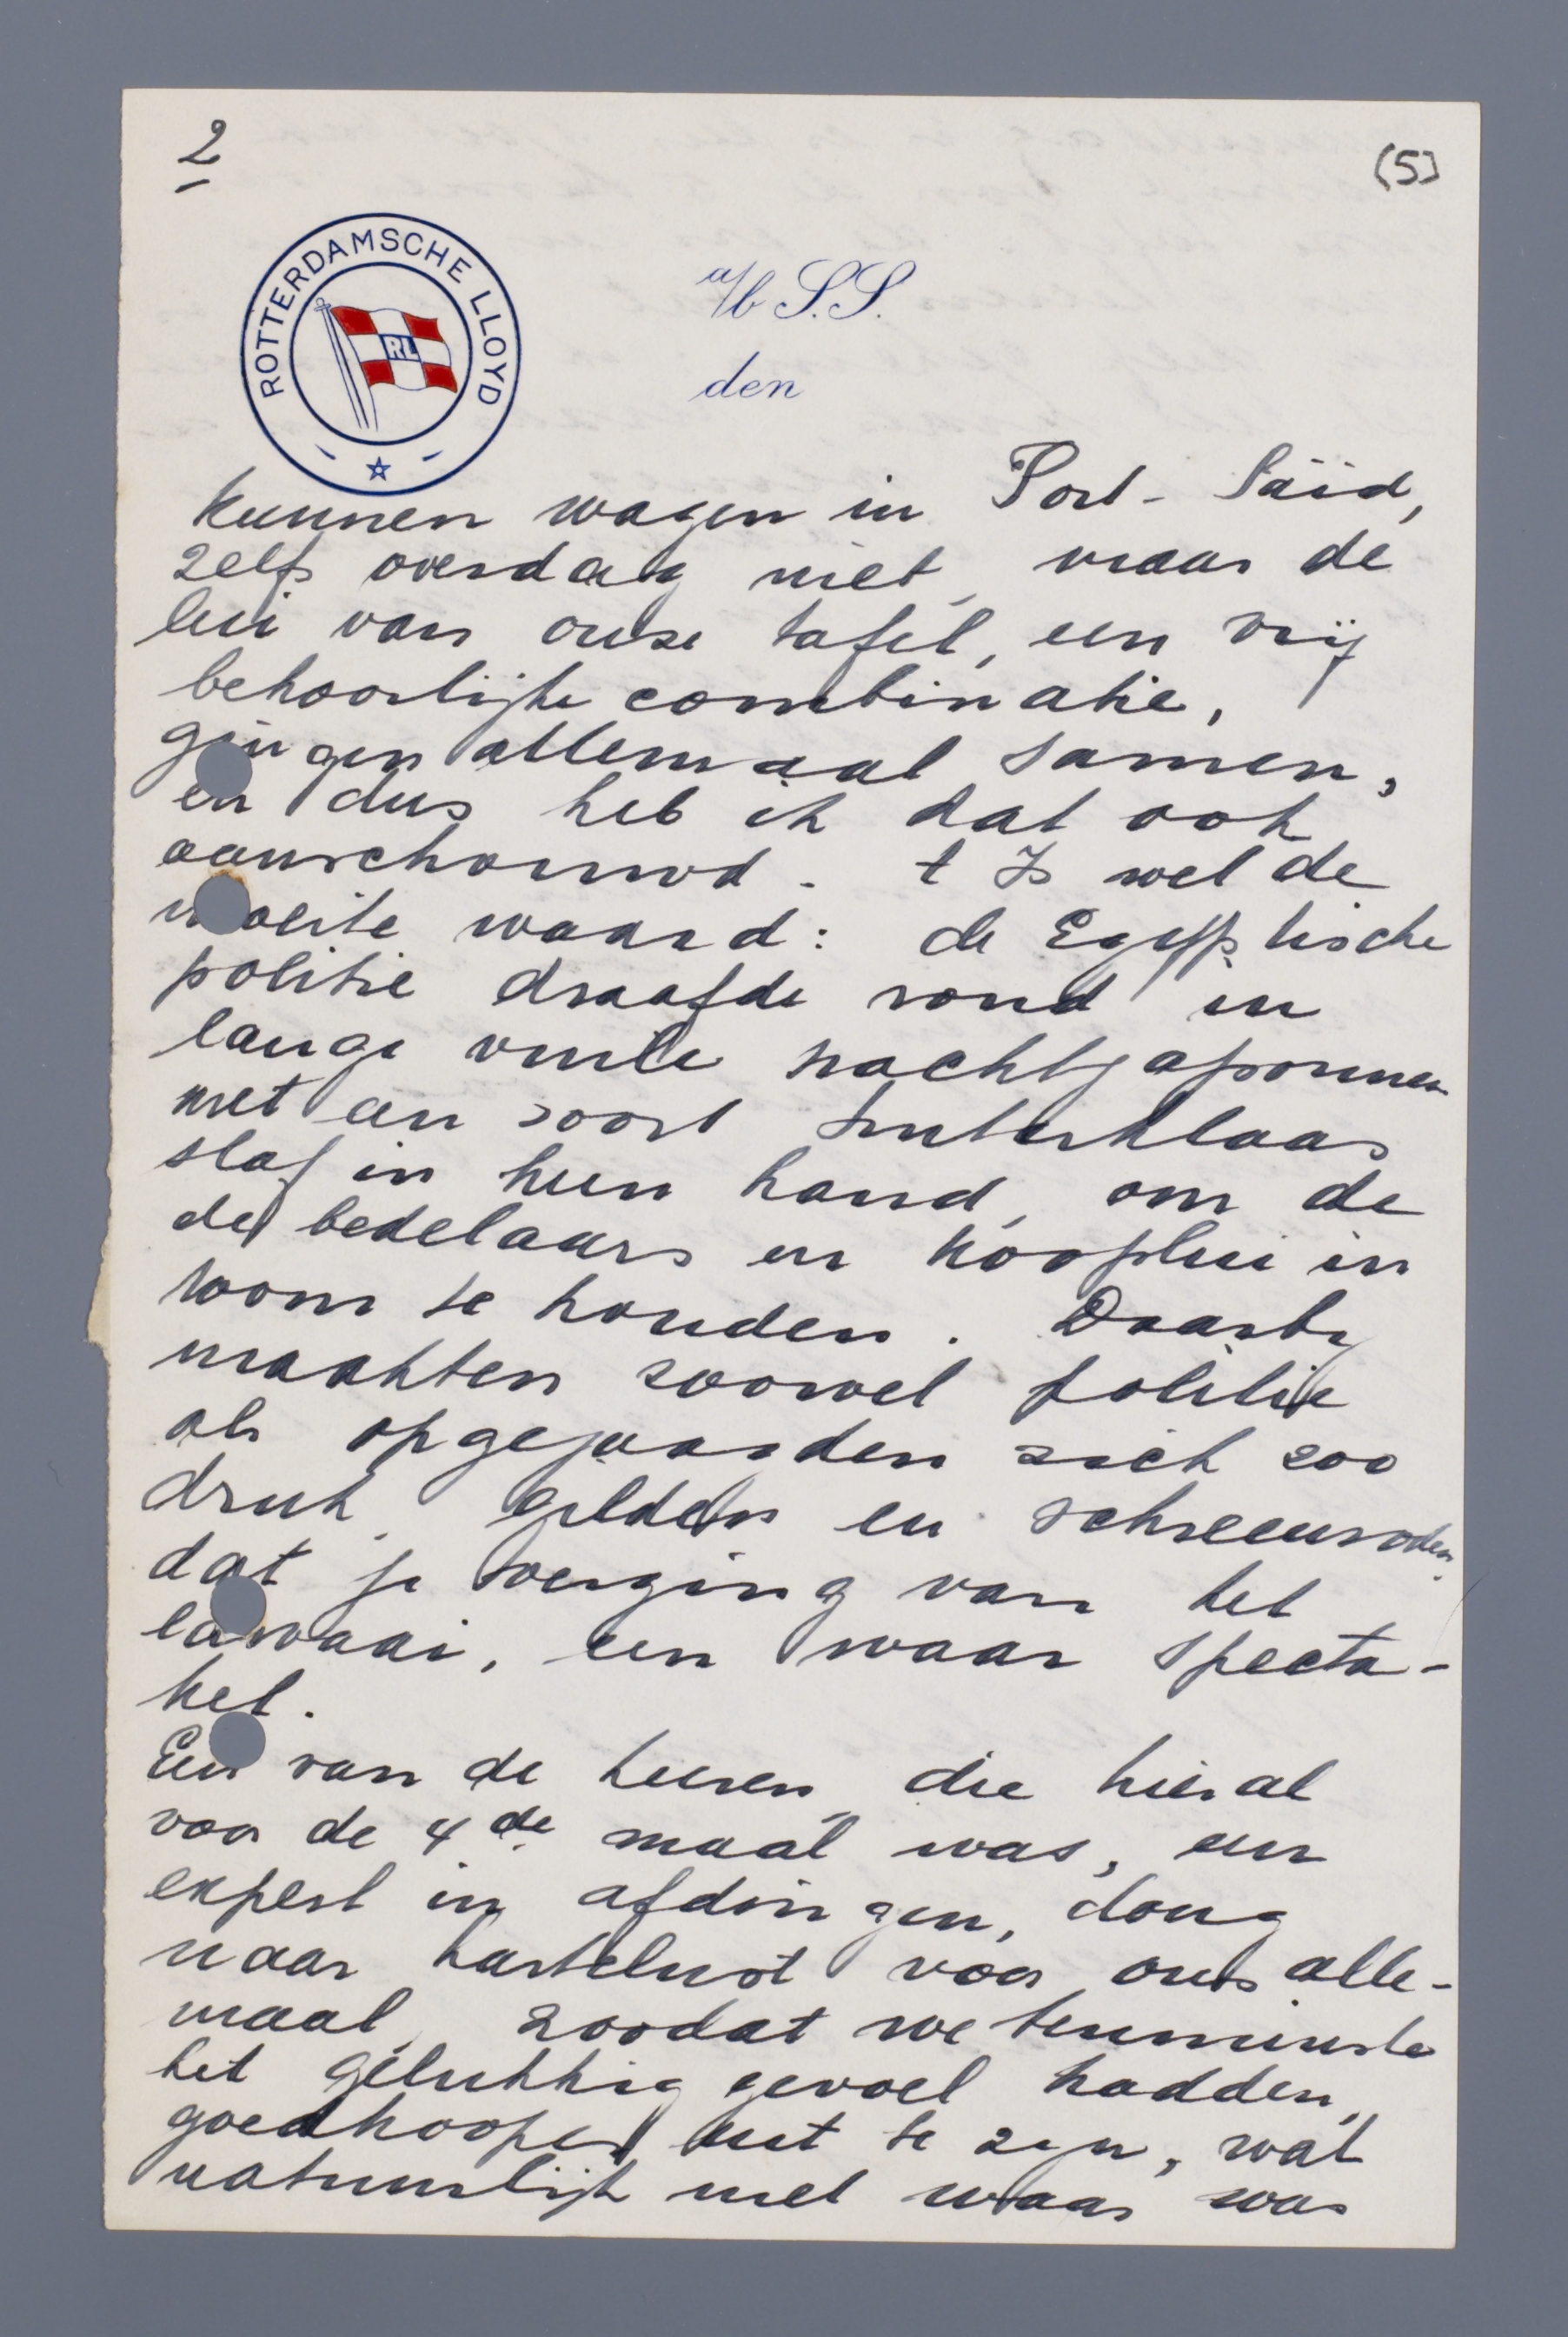 2
(5)
ROTTERDAMSCHE LLOYD
RL
a/b S.S.
den
kunnen wagen in Port-Säid,
zelfs overdag niet, maar de
lui van onze tafel, een vrij
behoorlijke combinatie,
gingen allemaal samen,
en dus heb ik dat ook
aanschouwd. t Is wel de
moeite waard: de Egyptische
politie draafde rond in
lange vuile nachtjaponnen
met een soort Sinterklaas
staf in hun hand, om de
de bedelaars en kooplui in
toom te houden. Daarby
maakten zoowel politie
als opgejaagden zich zoo
druk, gilden en schreeuwden
dat je verging van het
lawaai, een waar specta-
kel.
Een van de heeren, die hier al
voor de 4de maal was, een
expert in afdingen, dong
naar hartelust voor ons alle-
maal, zoodat we tenminste
het gelukkig gevoel hadden,
goedkooper uit te zyn, wat
natuurlijk niet waar was